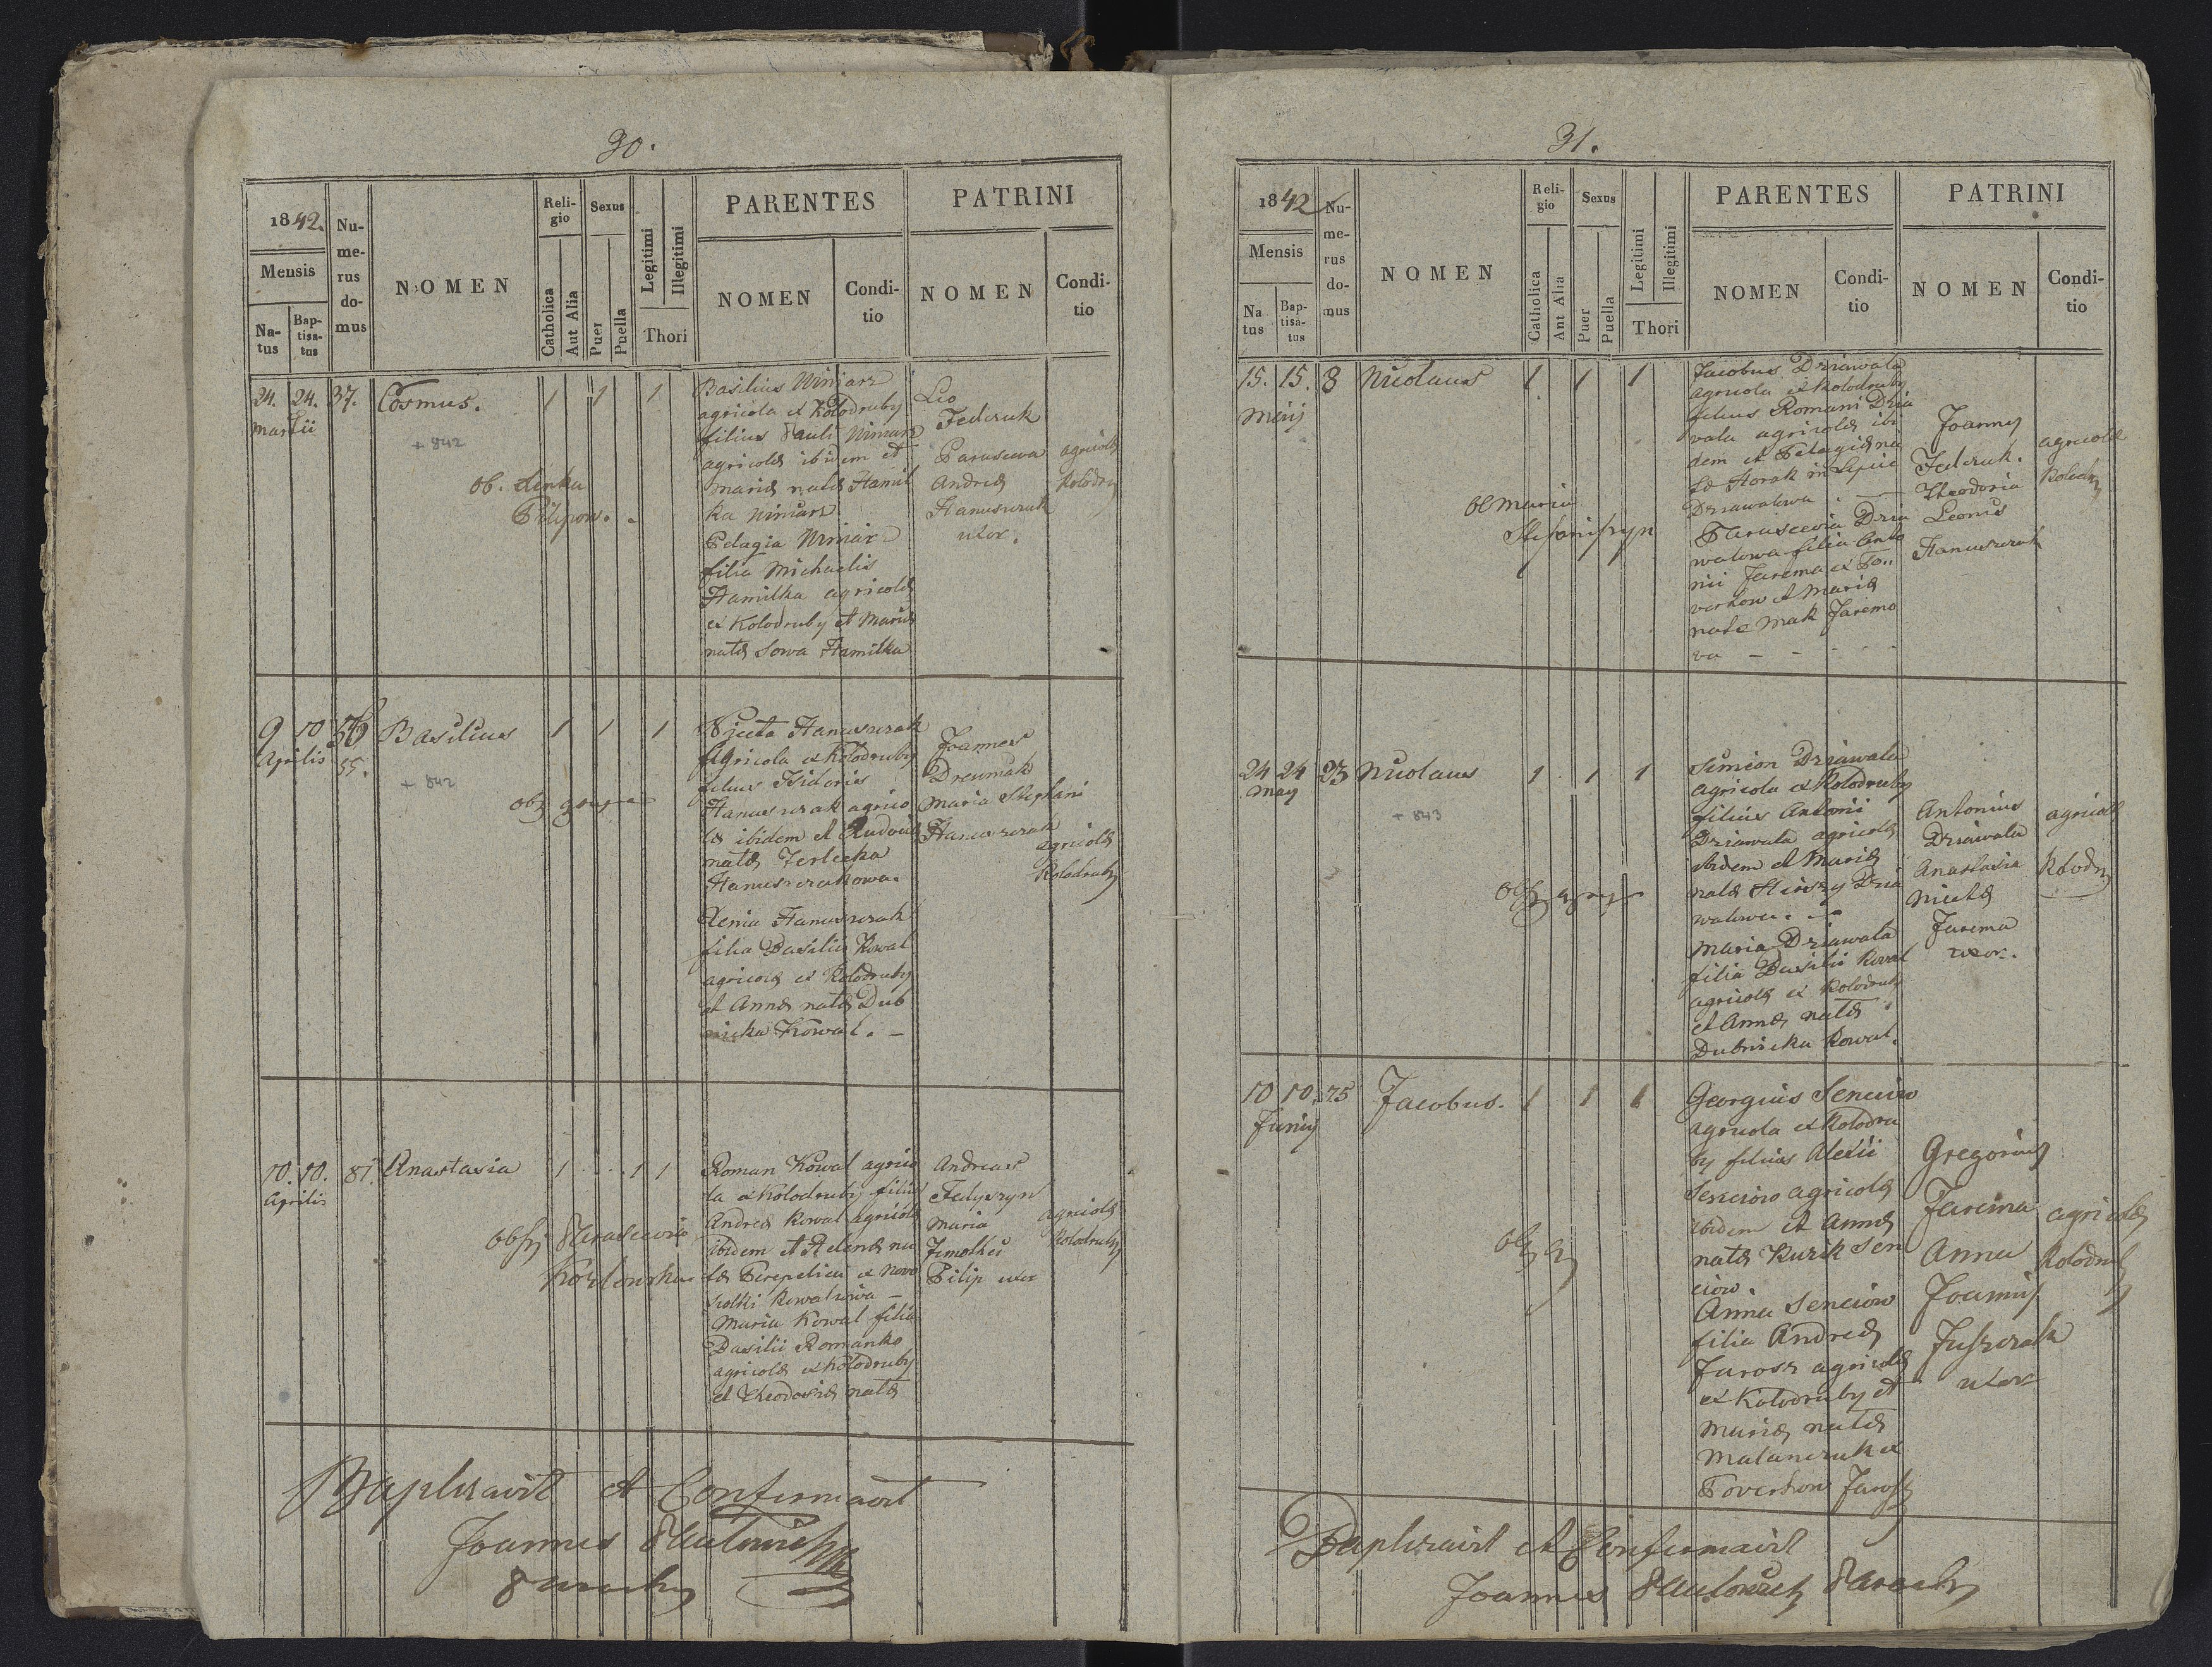 30.
1842.
Mensis
Na-
tus
Bap-
tisa-
tus
Nu-
me-
rus
do-
mus
NOMEN
Reli-
gio
Catholica
Aut Alia
Sexus
Puer
Puella
Legitimi
Illegitimi
Thori
PARENTES
NOMEN
Condi-
tio
PATRINI
NOMEN
Condi-
tio
24. 24. 37. Cosmus. 1 1 1
Martii
+ 842
ob. Xenka
Filipow.
Basilius Winiarz
agricola ex Kolodruby
filius Pauli Winiarz
agricolæ ibidem et
Mariæ natæ Hamil
ka Winiarz
Pelagia Winiarz
filia Michaelis
Hamilka agricolæ
ex Kolodruby et Mariæ
natæ Sowa Hamilka
Leo
Federuk
Parascewa
Andreæ
Hanuszczak
uxor.
agricolæ
Kolodruby
9 10 56 Basilius 1 1 1
Aprilis 55.
+ 842
Hanuszczak
Agricola ex Kolodruby
filius Isidoris
Hanuszczak agrico
læ ibidem et Eudociæ
natæ Terlecka
Hanuszczakowa.
Xenia Hanuszczak
filia Basilii Kowal
agricolæ ex Kolodruby
et Annæ natæ Dub
nicka Kowal. -
Joannes
Dreumak
Maria Stephani
Hanuszczak
agricolæ
Kolodruby
10. 10. 81. Anastasia 1 1 1
Aprilis
Parascevia
Kozlowska
Roman Kowal agrico
la ex Kolodruby filius
Andreæ Kowal agricolæ
ibidem et Helenæ na
tæ Perepelica ex Nowo
siolki Kowalowa -
Maria Kowal filia
Basilii Romanko
agricolæ ex Kolodruby
et Theodosiæ natæ
Andreas
Fedyszyn
Maria
Timothei
Filip uxor
agricolæ
Kolodruby
Baptisavit et Confirmavit
Joannes
Parochus
31.
1842
Mensis
Na
tus
Bap-
tisa-
tus
Nu-
me-
rus
do-
mus
NOMEN
Reli-
gio
Catholica
Ant Alia
Sexus
Puer
Puella
Legitimi
Illegitimi
Thori
PARENTES
NOMEN
Condi-
tio
PATRINI
NOMEN
Condi-
tio
15. 15. 8 Nicolaus 1 1 1
Maij
ob Maria
Jacobus Dziawala
agricola ex Kolodruby
filius Romani Dzia
wala agricolæ ibi
dem et Pelagiæ na
tæ Horak in
Dziawalowa . -
Parascevia Dzia
walowa filia Anto
nii Jarema ex Po
verhow et Mariæ
natæ Mak Jaremo
va - - - -
Joannes
Federuk.
Theodosia
Leonis
Hanuszczak
agricolæ
Kolodruby
24 24 23 Nicolaus 1 1 1
May
+ 843
Simion Dziawala
agricola ex Kolodruby
filius Antonii
Dziawala agricolæ
ibidem et Mariæ
natæ Dzia
walowa. -
Maria Dziawala
filia Basilii Kowal
agricolæ ex Kolodruby
et Annæ natæ
Dubnicka Kowal.
Antonius
Dziawala
Anastasia
Nicetæ
Jarema
uxor.
agricolæ
Kolodruby
10 10. 75 Jacobus. 1 1 1
Junij
Georgius Senciow
agricola ex Kolodru
by filius Alexii
Senciow agricolæ
ibidem et Annæ
natæ Kuzik Sen
ciow.
Anna Senciow
filia Andreæ
Jarosz agricolæ
ex Kolodruby et
Mariæ natæ
Malanczuk ex
Poverhow Jarosz
Gregorius
Jarema
Anna
Joannis
Juszczak
uxor
agricolæ
Kolodruby
Baptisavit et Confirmavit
Joannes Parochus